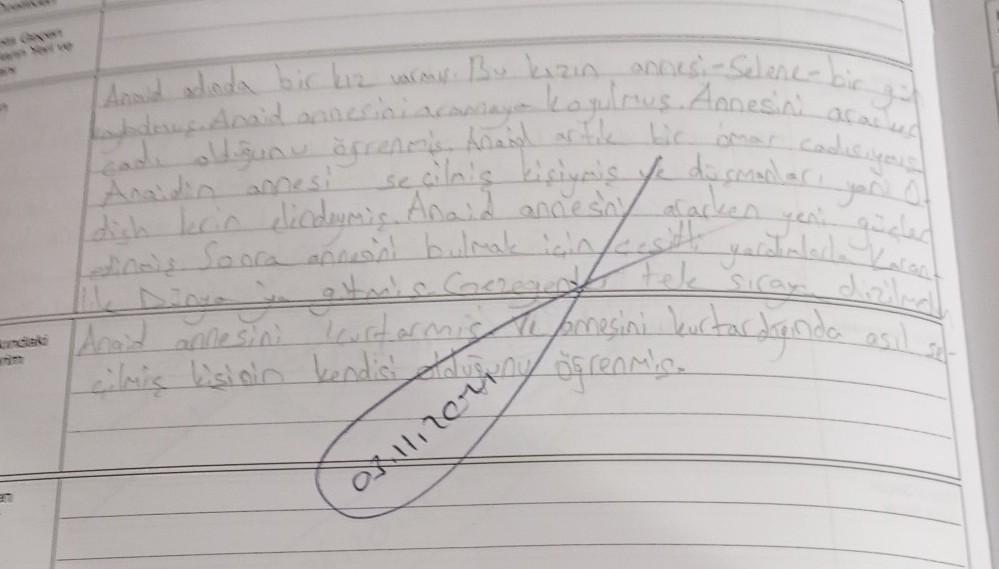 Anaid adında bir kız varmış. Bu kızın annesi-Selene-bir gün
kaybolmuş. Anaid annesini aramaya koyulmuş. Annesini ararken
cadı olduğunu öğrenmiş. Anaid artık bir omar cadısıymış
Anaidin annesi seçilmiş kişiymiş ve düşmanları yani O
dish lerin elindeymiş. Anaid annesini ararken yeni güçler
edinmiş Sonra annesini bulmak için çeşitli yardımlarla Karan-
lık Dünya ya gitmiş. Gezegenler tek sıraya
Anaid annesini kurtarmış ve annesini kurtardığında asıl se-
çilmiş kişinin kendisi olduğunu öğrenmiş.
03.11.2021